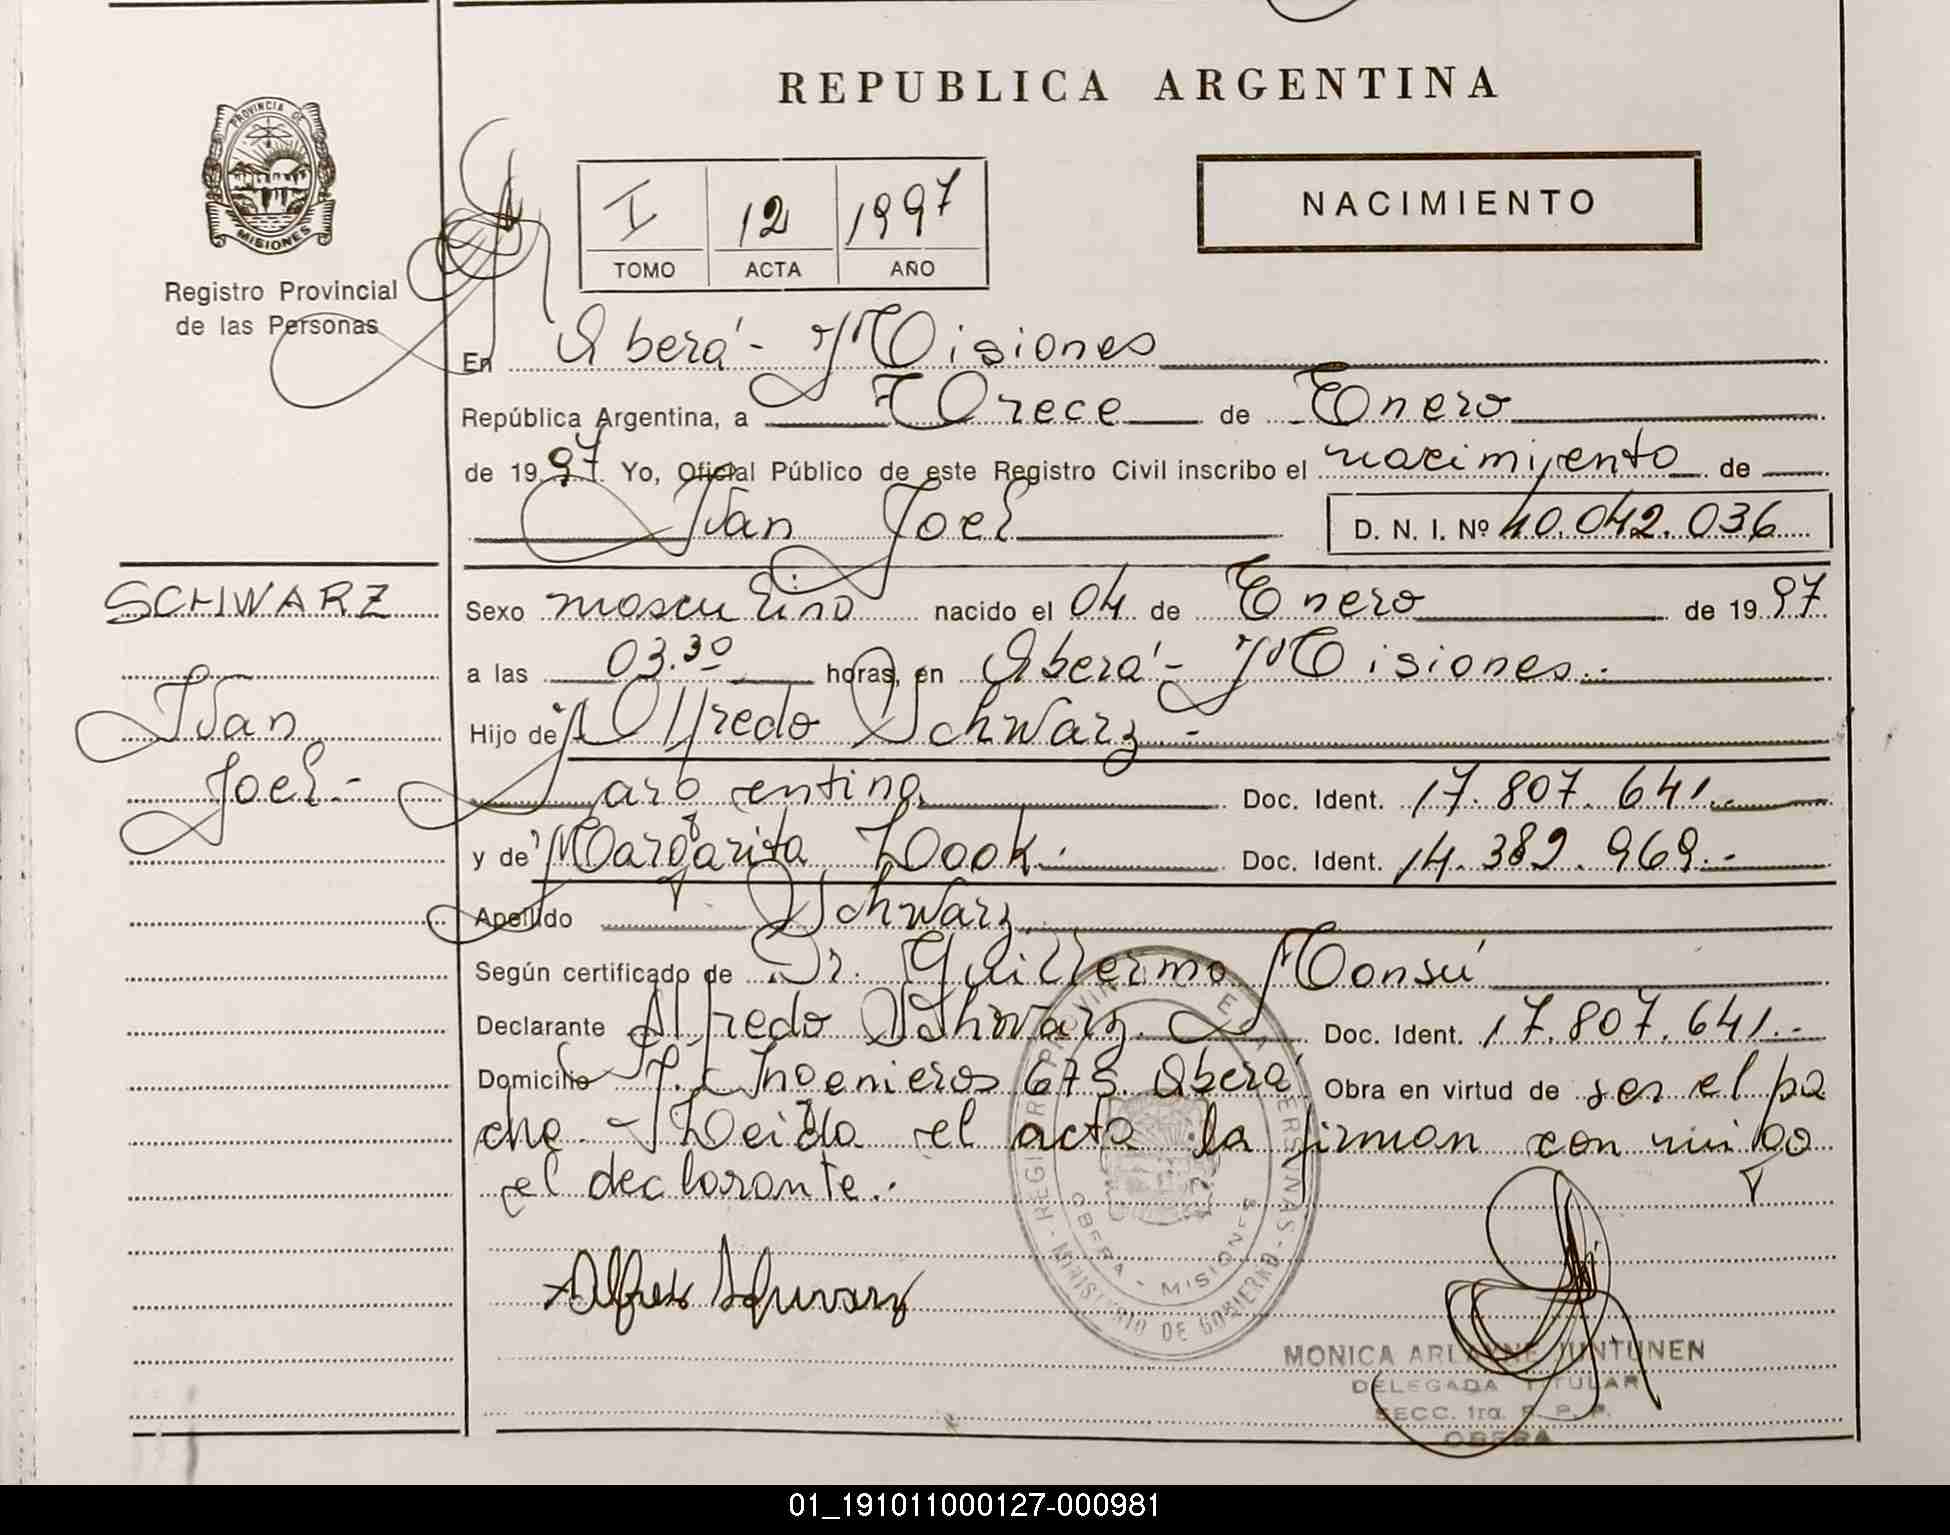 REPUBLICA ARGENTINA
PROVINCIA DE
MISIONES
Registro Provincial
de las Personas
I 12 1997
TOMO ACTA AÑO
NACIMIENTO
En Oberá - Misiones
República Argentina, a Trece de Enero
de 1997. Yo, Oficial Público de este Registro Civil inscribo el nacimiento de
Ivan Joel D. N. I. Nº 40.042.036
SCHWARZ
Ivan
Joel.-
Sexo masculino nacido el 04 de Enero de 1997
a las 03.30 horas, en Oberá - Misiones.-
Hijo de Alfredo Schwarz.-
argentina Doc. Ident. 17.807.641.-
y de Margarita Look.- Doc. Ident. 14.382.969.-
Apellido Schwarz
Según certificado de Dr. Guillermo Monsú
Declarante Alfredo Schwarz. Doc. Ident. 17.807.641.-
Domicilio J. Ingenieros 675. Oberá Obra en virtud de ser el pa
dre - Leida el acta la firman conmigo
el declarante.-
Alfredo Schwarz
REGISTRO PROVINCIAL DE LAS PERSONAS - MINISTERIO DE GOBIERNO -
OBERA - MISIONES
MONICA ARLAYNE JUNTUNEN
DELEGADA TITULAR
SECC. 1ra. R. P. P.
OBERA
01_191011000127-000981